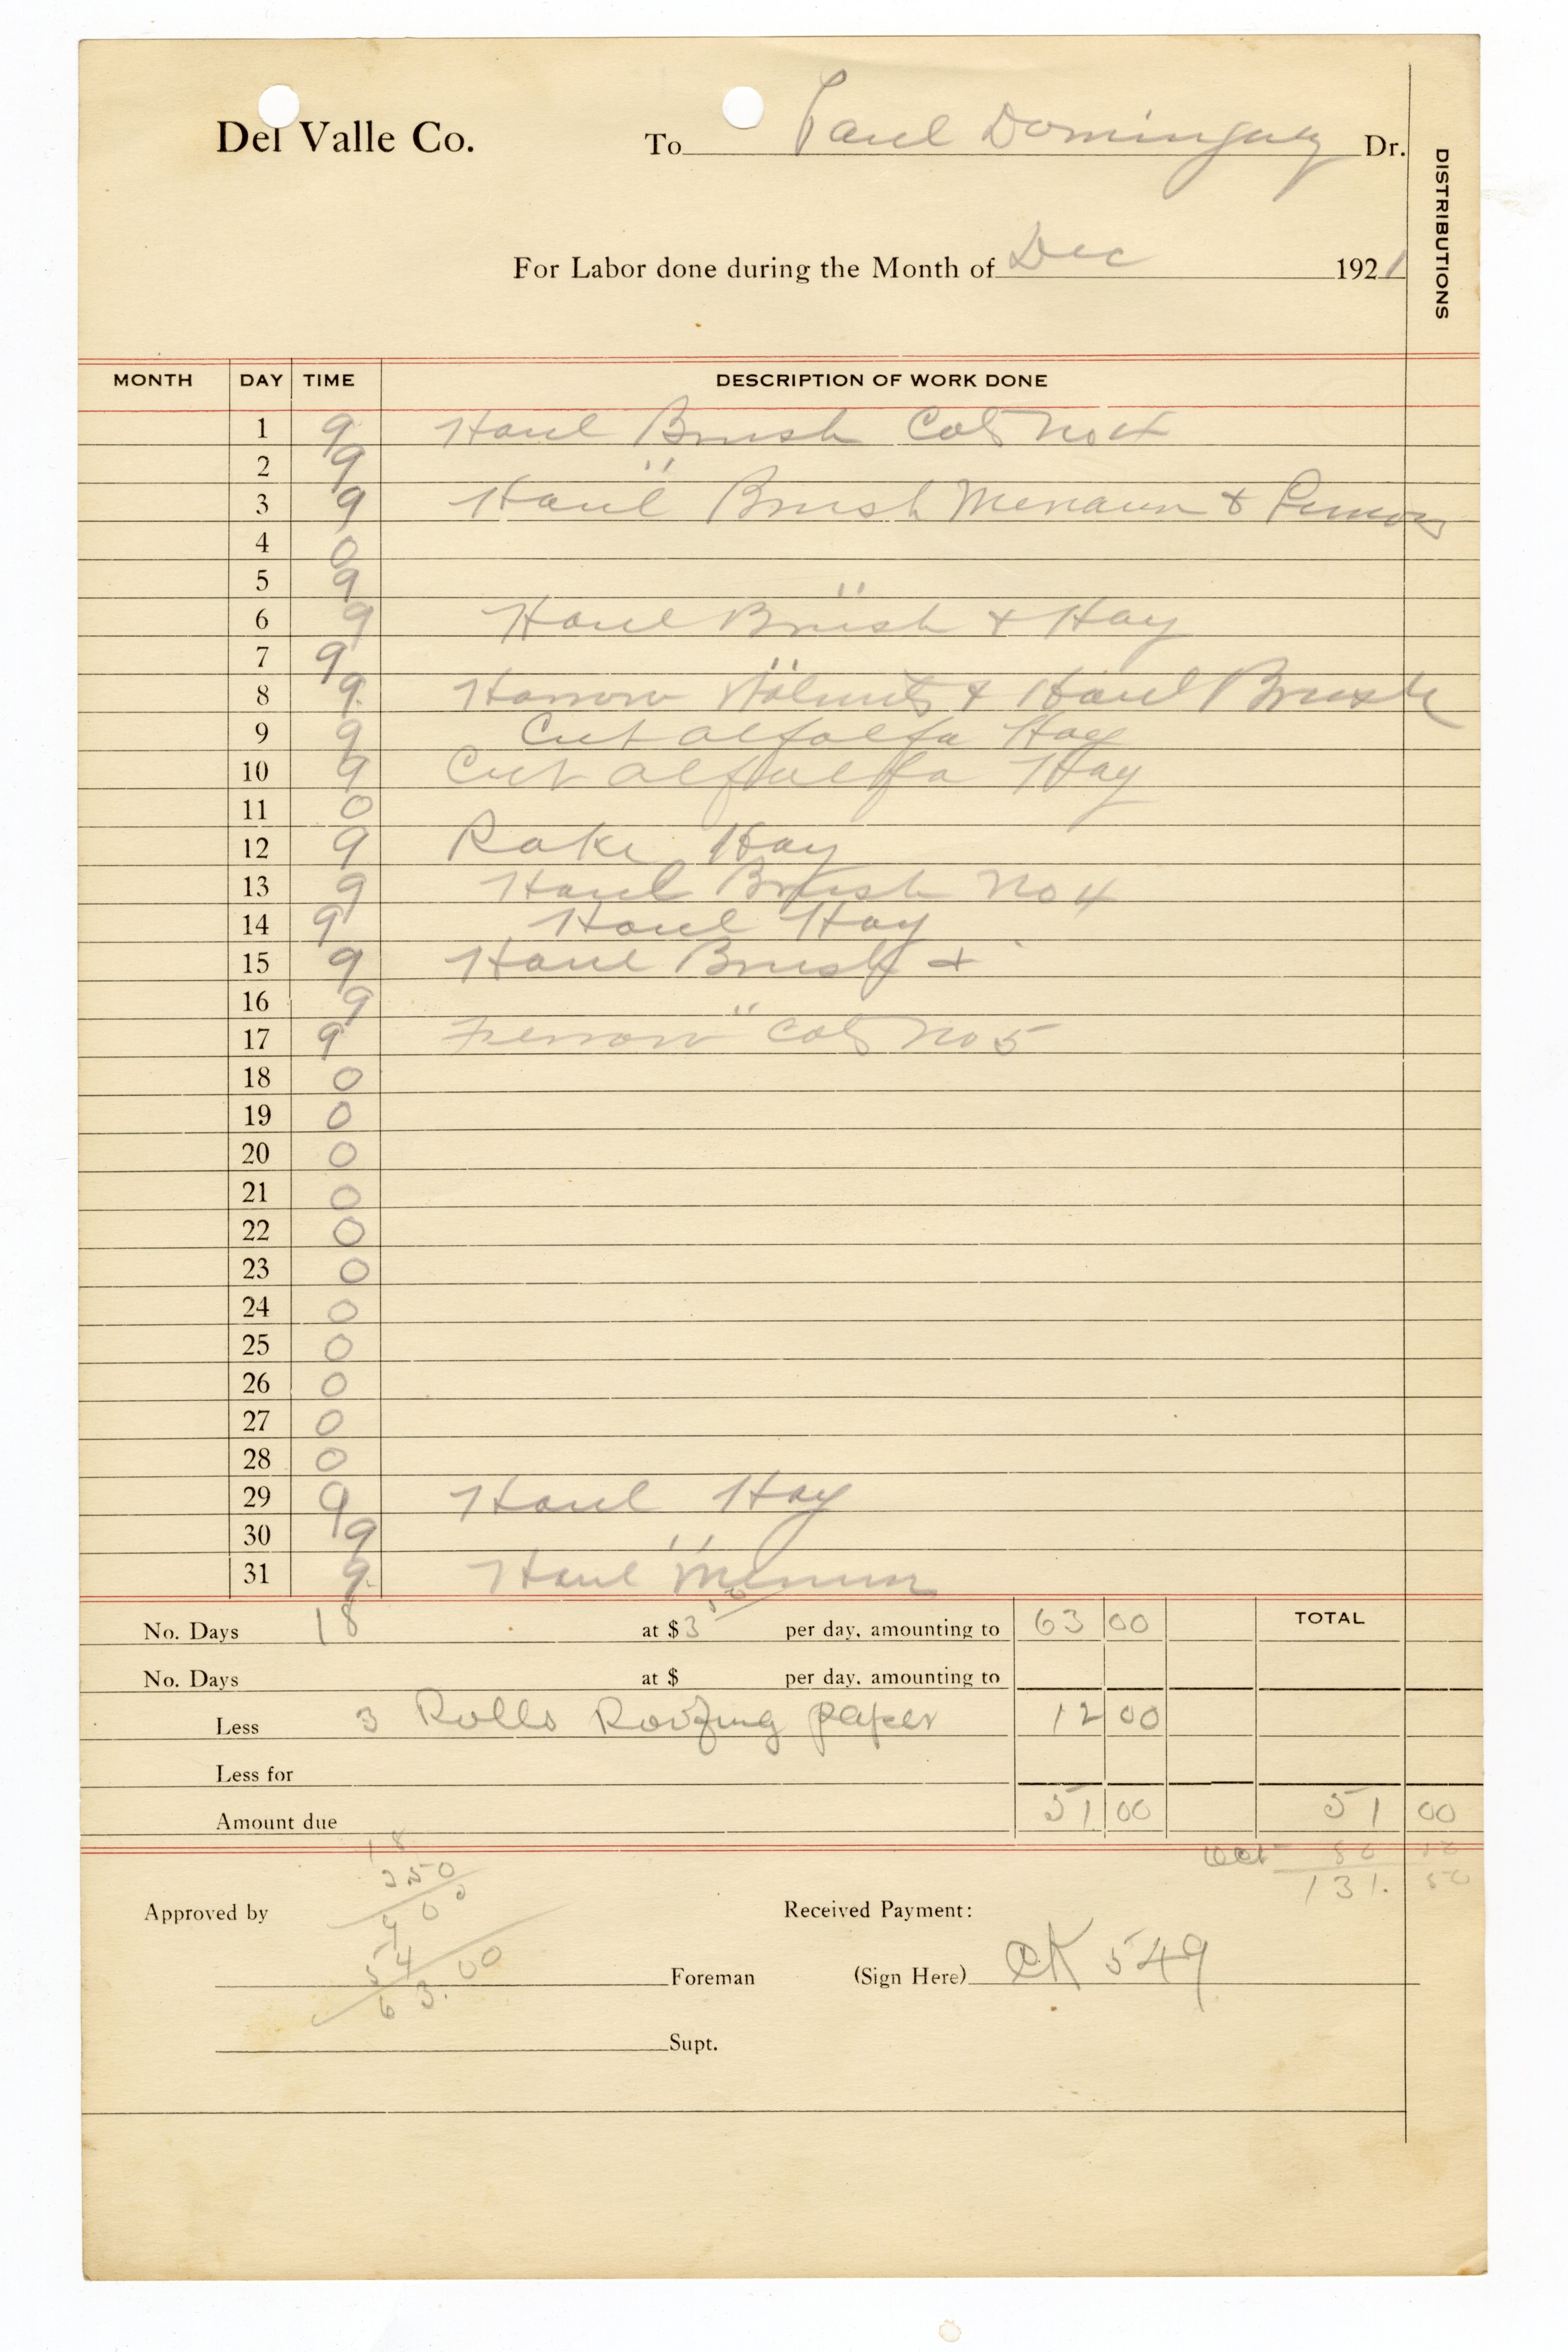 Del Valle Co. To Paul Dominguez Dr.
DISTRIBUTIONS
For Labor done during the Month of Dec 1921
MONTH DAY TIME DESCRIPTION OF WORK DONE
1 9 Haul Brush Cots No 4
2 9 " 
3 9 Haul Brush Menaun &
4 0
5 9 "
6 9 Haul Brush & Hay
7 9 "
8 9 Harrow Walnuts & Haul Brush
9 9 Cut alfalfa Hay
10 9 Cut alfalfa Hay
11 0
12 9 Rake Hay
13 9 Haul Brush No 4
14 9 Haul Hay
15 9 Haul Brush &
16 9 "
17 9 Cots No 5
18 0
19 0
20 0
21 0
22 0
23 0
24 0
25 0
26 0
27 0
28 0
29 9 Haul Hay
30 9 "
31 9 Haul
No. Days 18 at $ 3 50 per day, amounting to 63 00 TOTAL
No. Days at $ per day, amounting to
Less 3 Rolls Roofing paper 12 00
Less for
Amount due 51 00 51 00
Oct 80 50
131. 50
18
350
900
54
63.00
Approved by Received Payment:
Foreman (Sign Here) CK 549
Supt.